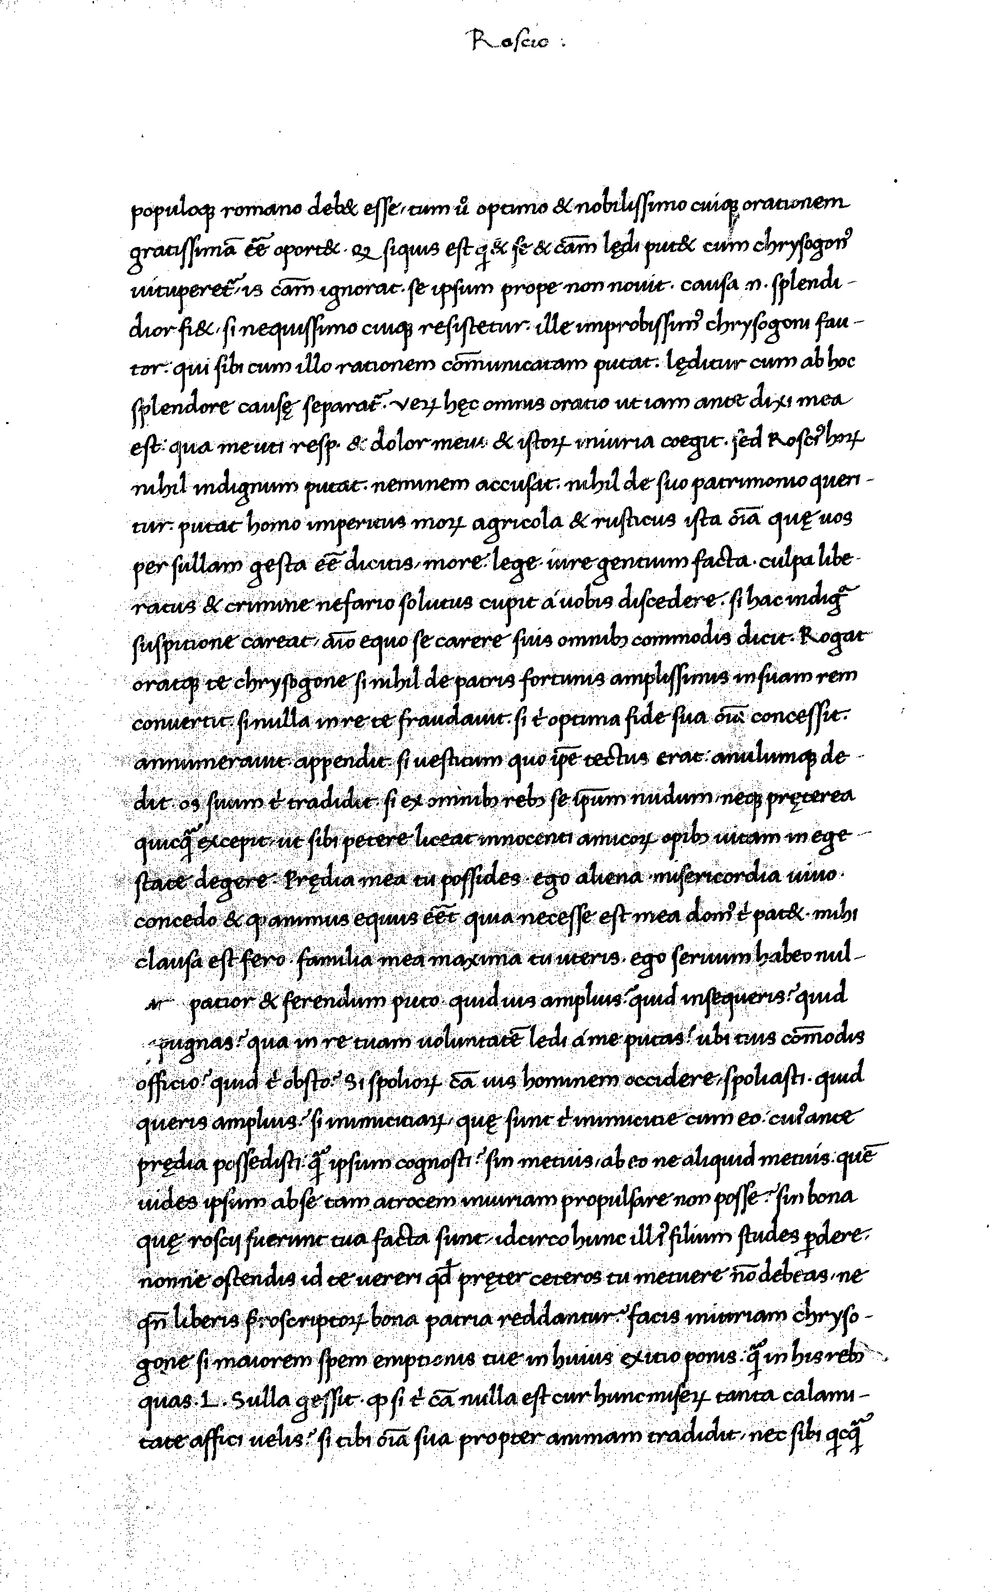 Roscio :
populoq; romano deb& esse, tum u̓ optimo & nobilissimo cuiq; orationem
gratissimā eē̃ oport&. Q siquis est q̓ & se & cãm lędi put& cum chrysogonꝰ
uituperet̃, is cãm ignorat. se ipsum prope non nouit. causa .n. splendi-
dior fi&, si nequissimo cuiq; resistetur. ille improbissimꝰ chrysogoni fau-
tor. qui sibi cum illo rationem cõmunicatam putat. lęditur cum ab hoc
splendore causę separat̃. Veꝝ hęc omnis oratio ut iam ante dixi mea
est. qua me uti resp. & dolor meus & istoꝝ iniuria coegit. sed Rosciꝰ hoꝝ
nihil indignum putat. neminem accusat. nihil de suo patrimonio queri-
tur. putat homo imperitus moꝝ agricola & rusticus ista oĩa quę uos
per sullam gesta eē̃ dicitis, more. lege. iure gentium facta. culpa libe-
ratus & crimine nefario solutus cupit á uobis discedere. si hac indig̃
suspitione careat, aĩo equo se carere suis omnibꝫ commodis dicit. Rogat
oratq; te chrysogone si nihil de patris fortunis amplissimis in suam rem
conuertit. si nulla in re te fraudauit. si t̓ optima fide sua oĩa concessit.
annumerauit. appendit. si uestitum quo ip̃e tectus erat. anulumq; de-
dit. os suum t̓ tradidit. si ex omnibꝫ rebꝫ se ip̃um nudum, neq; pręterea
quicq̃ excepit, ut sibi petere liceat innocenti amicoꝝ opibꝫ uitam in ege-
state degere. Prędia mea tu possides. ego aliena misericordia uiuo.
concedo & ꝙ animus equus eē̃t quia necesse est mea domꝰ t̓ pat&. mihi
clausa est fero. familia mea maxima tu uteris. ego seruum habeo nul-
patior & ferendum puto. quid uis amplius? quid insequeris? quid
pugnas? qua in re tuam uoluntatẽ ledi á me putas? ubi tuis cõmodis
officio? quid t̓ obsto? Si spolioꝝ cã uis hominem occidere, spoliasti. quid
queris amplius? si inimicitiaꝝ, quę sunt t̓ inimicitie cum eo. cuiꝰ ante
prędia possedisti. q̃ ipsum cognosti? sin metuis, ab eo ne aliquid metuis. quẽ
uides ipsum ab se tam atrocem iniuriam propulsare non posse? sin bona
quę roscij fuerunt tua facta sunt, idcirco hunc illiꝰ filium studes ꝑdere.
nonne ostendis id te uereri qď pręter ceteros tu metuere nõ debeas, ne
qñ liberis proscriptoꝝ bona patria reddantur? facis iniuriam chryso-
gone si maiorem spem emptionis tue in huius exitio ponis. q̃ in his rebꝫ
quas .L. Sulla gessit. ꝙ si t̓ cã nulla est cur hunc miseꝝ tanta calami-
tate affici uelis? si tibi oĩa sua propter animam tradidit, nec sibi q̓cq̃